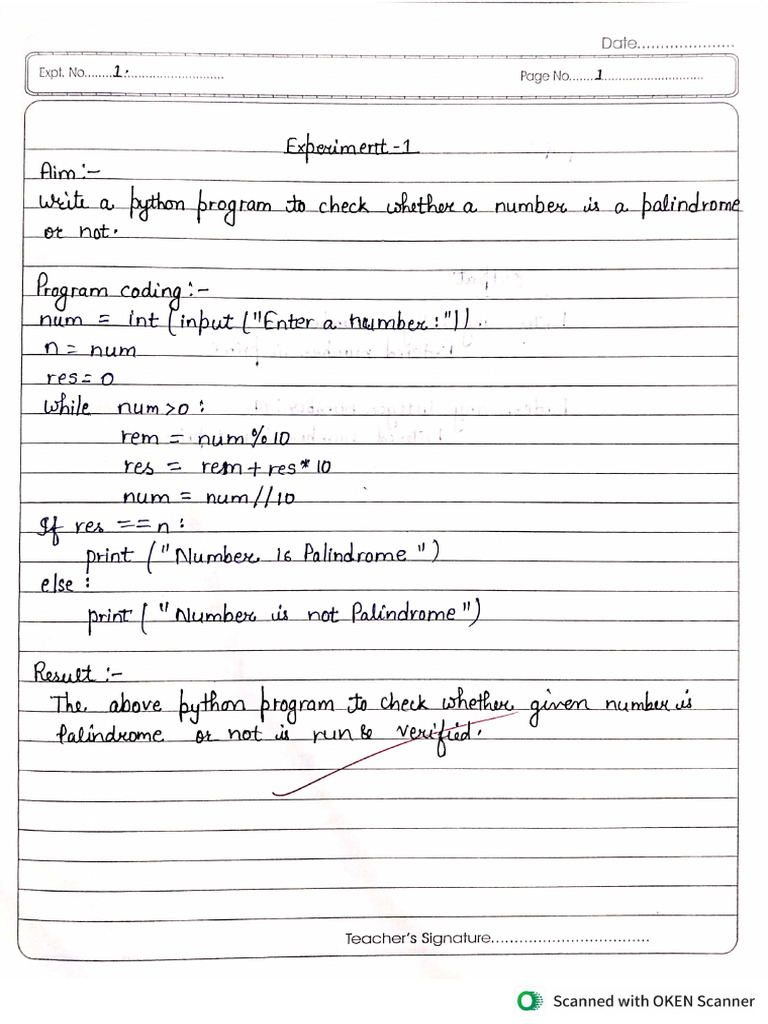 Date.....................
Expt. No........1............................
Page No.......1............................
Experiment-1
Aim :-
Write a python program to check whether a number is a palindrome
or not.
Program coding :-
num = int (input ("Enter a number : ")).
n = num
res = 0
while num > 0 :
rem = num % 10
res = rem + res * 10
num = num // 10
If res == n :
print ("Number is Palindrome ")
else :
print ( "Number is not Palindrome ")
Result :-
The above python program to check whether given number is
Palindrome or not is run & verified.
Teacher's Signature.................................
Scanned with OKEN Scanner